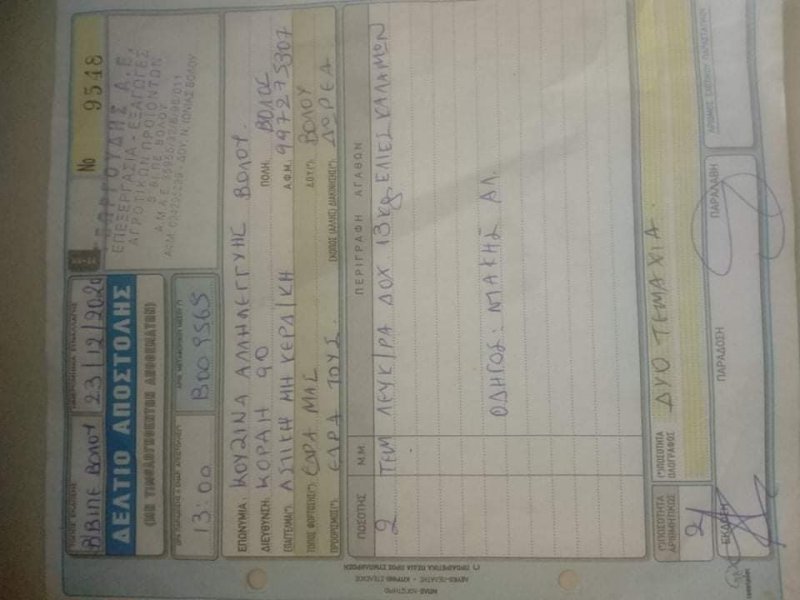 Β ΒΙΠΕ ΒΟΛΟΥ 23/12/2020
Νο 9548
ΔΕΛΤΙΟ ΑΠΟΣΤΟΛΗΣ
(ΜΗ ΤΙΜΟΛΟΓΗΘΕΝΤΩΝ ΑΠΟΘΕΜΑΤΩΝ)
ΕΠΕΞΕΡΓΑΣΙΑ - ΕΞΑΓΩΓΕΣ
ΑΓΡΟΤΙΚΩΝ ΠΡΟΪΟΝΤΩΝ
Β΄ ΒΙΠΕ ΒΟΛΟΥ
13:00
ΕΠΩΝΥΜΙΑ: ΚΟΥΖΙΝΑ ΑΛΛΗΛΕΓΓΥΗΣ ΒΟΛΟΥ
ΔΙΕΥΘΥΝΣΗ: ΚΟΡΑΗ 90 ΠΟΛΗ: ΒΟΛΟΣ
ΕΠΑΓΓΕΛΜΑ(*): ΑΣΤΙΚΗ ΜΗ ΚΕΡΔ/ΚΗ Α.Φ.Μ.: 997275307
ΤΟΠΟΣ ΦΟΡΤΩΣΗΣ(*): ΕΔΡΑ ΜΑΣ ΔΟΥ(*): ΒΟΛΟΥ
ΠΡΟΟΡΙΣΜΟΣ(*): ΕΔΡΑ ΤΟΥΣ ΣΚΟΠΟΣ (ΑΛΛΗΣ) ΔΙΑΚΙΝΗΣΗΣ(*): ΔΩΡΕΑ
ΠΟΣΟΤΗΣ Μ.Μ. ΠΕΡΙΓΡΑΦΗ ΑΓΑΘΩΝ
2 ΤΕΜ ΛΕΥΚ/ΡΑ ΔΟΧ 13kg ΕΛΙΕΣ ΚΑΛΑΜΩΝ
ΟΔΗΓΟΣ: ΝΤΑΚΗΣ ΑΛ.
(*)ΠΟΣΟΤΗΣ ΑΡΙΘΜΗΤΙΚΩΣ 2 (*)ΠΟΣΟΤΗΣ ΟΛΟΓΡΑΦΩΣ ΔΥΟ ΤΕΜΑΧΙΑ
ΕΚΔΟΣΗ ΠΑΡΑΔΟΣΗ ΠΑΡΑΛΑΒΗ